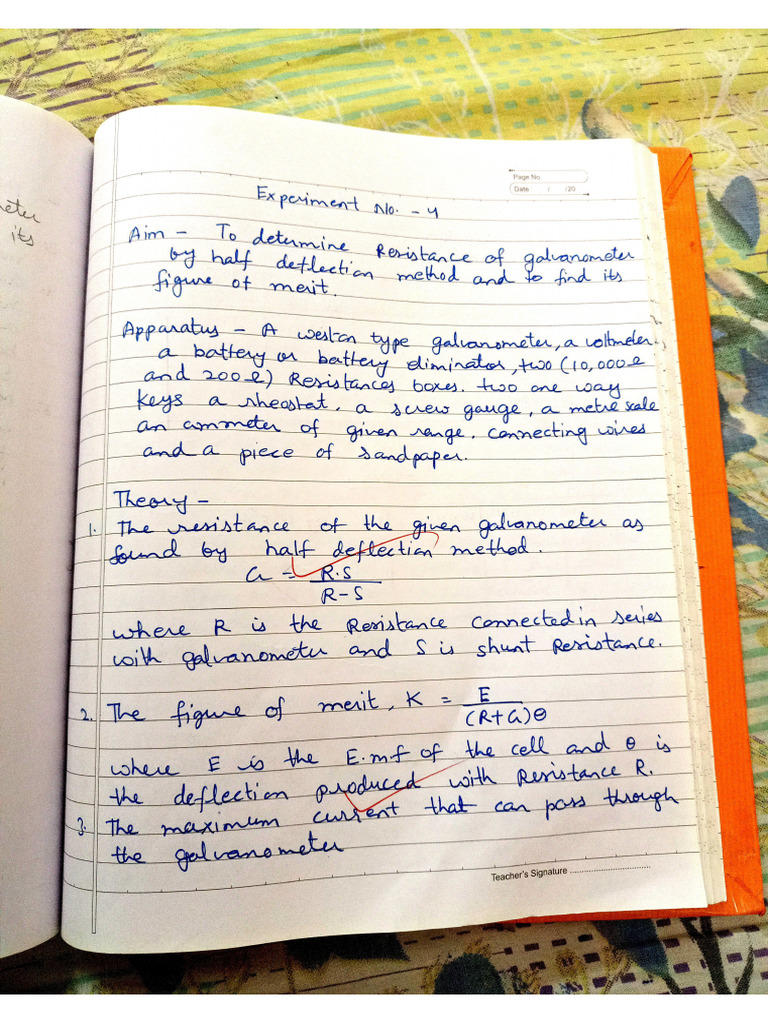 eter
its
Page No.
Date / /20
Experiment No. - 4
Aim - To determine Resistance of galvanometer
by half deflection method and to find its
figure of merit.
Apparatus - A weston type galvanometer, a voltmeter
a battery or battery eliminator, two (10,000Ω
and 200Ω) Resistances boxes. two one way
keys a rheostat. a screw gauge, a metre scale
an ammeter of given range. connecting wires
and a piece of sandpaper.
Theory -
1. The resistance of the given galvanometer as
found by half deflection method.
G = R.S
R-S
where R is the Resistance connected in series
with galvanometer and S is shunt Resistance.
2. The figure of merit, K = E
(R+G)θ
where E is the E.m.f of the cell and θ is
the deflection produced with Resistance R.
3. The maximum current that can pass through
the galvanometer
Teacher's Signature ..............................